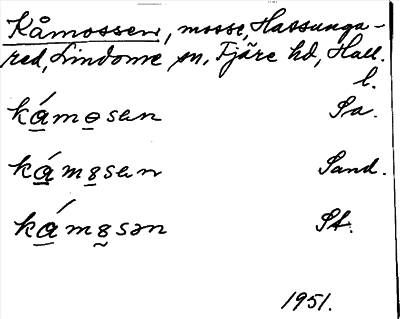 Kåmossen, mosse, Hassunga-
red, Lindome sn, Fjäre hd, Hall.
l.
ká̱mo̱sən Sa.
ká̱mꝸsən Sand.
ká̱mꝸsən St.
1951.